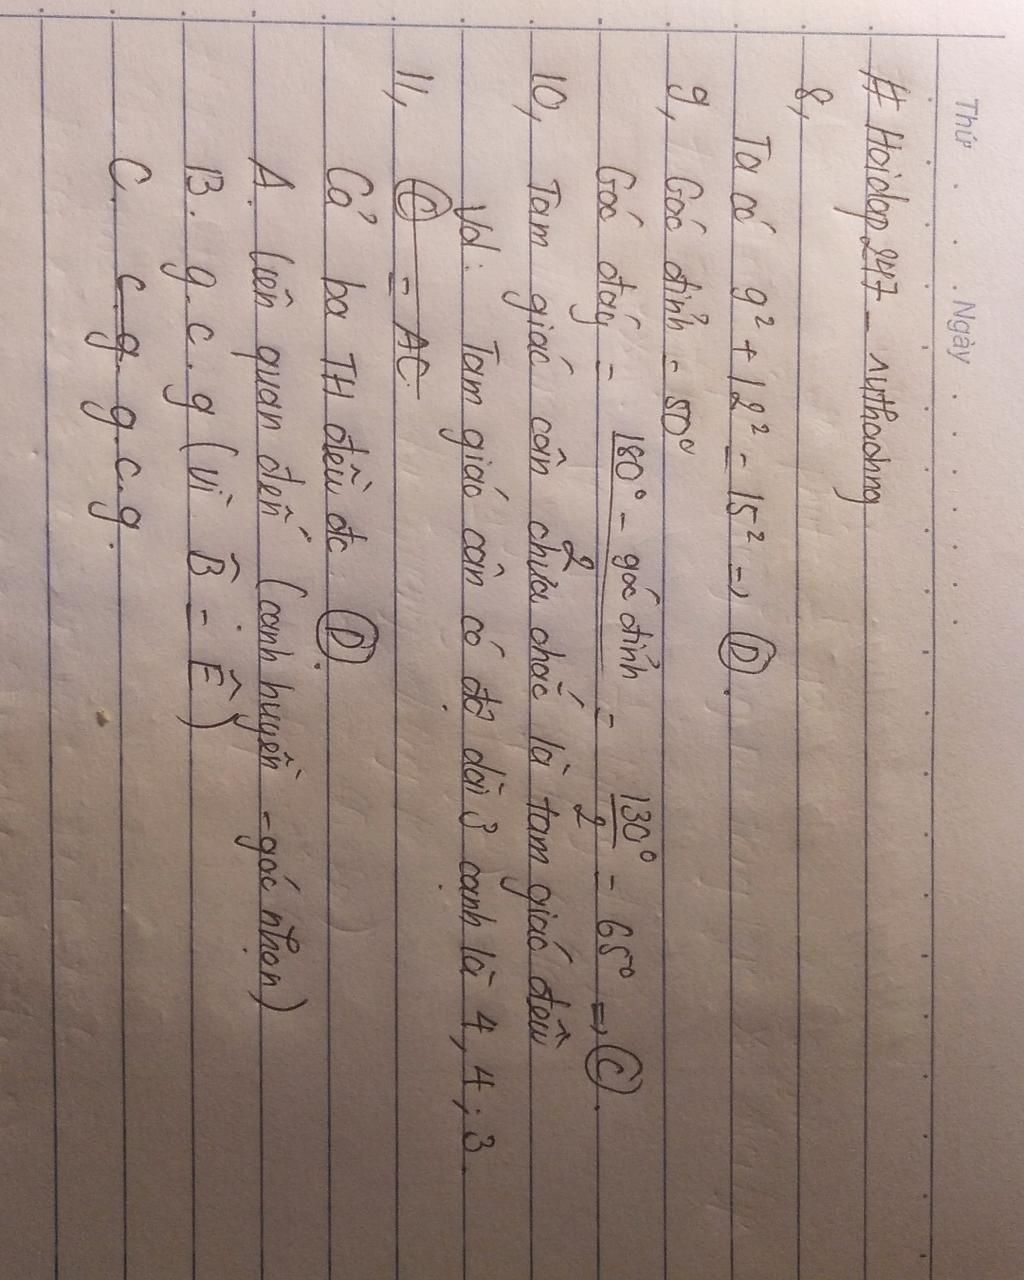 Thứ . . . . Ngày . . . . . . .
# Hoidap247 – nuthachng
8,
Ta có 9² + 12² = 15² => D.
9, Góc đỉnh = 50°
Góc đáy = 180° - góc đỉnh / 2 = 130° / 2 = 65° => C.
10, Tam giác cân chưa chắc là tam giác đều
Vd: Tam giác cân có độ dài 3 cạnh là 4, 4; 3.
11, C = AC
Cả ba TH đều đc D.
A. liên quan đến (cạnh huyền - góc nhọn)
B. g.c.g (vì B̂ = Ê)
C. c.g. g.c.g.